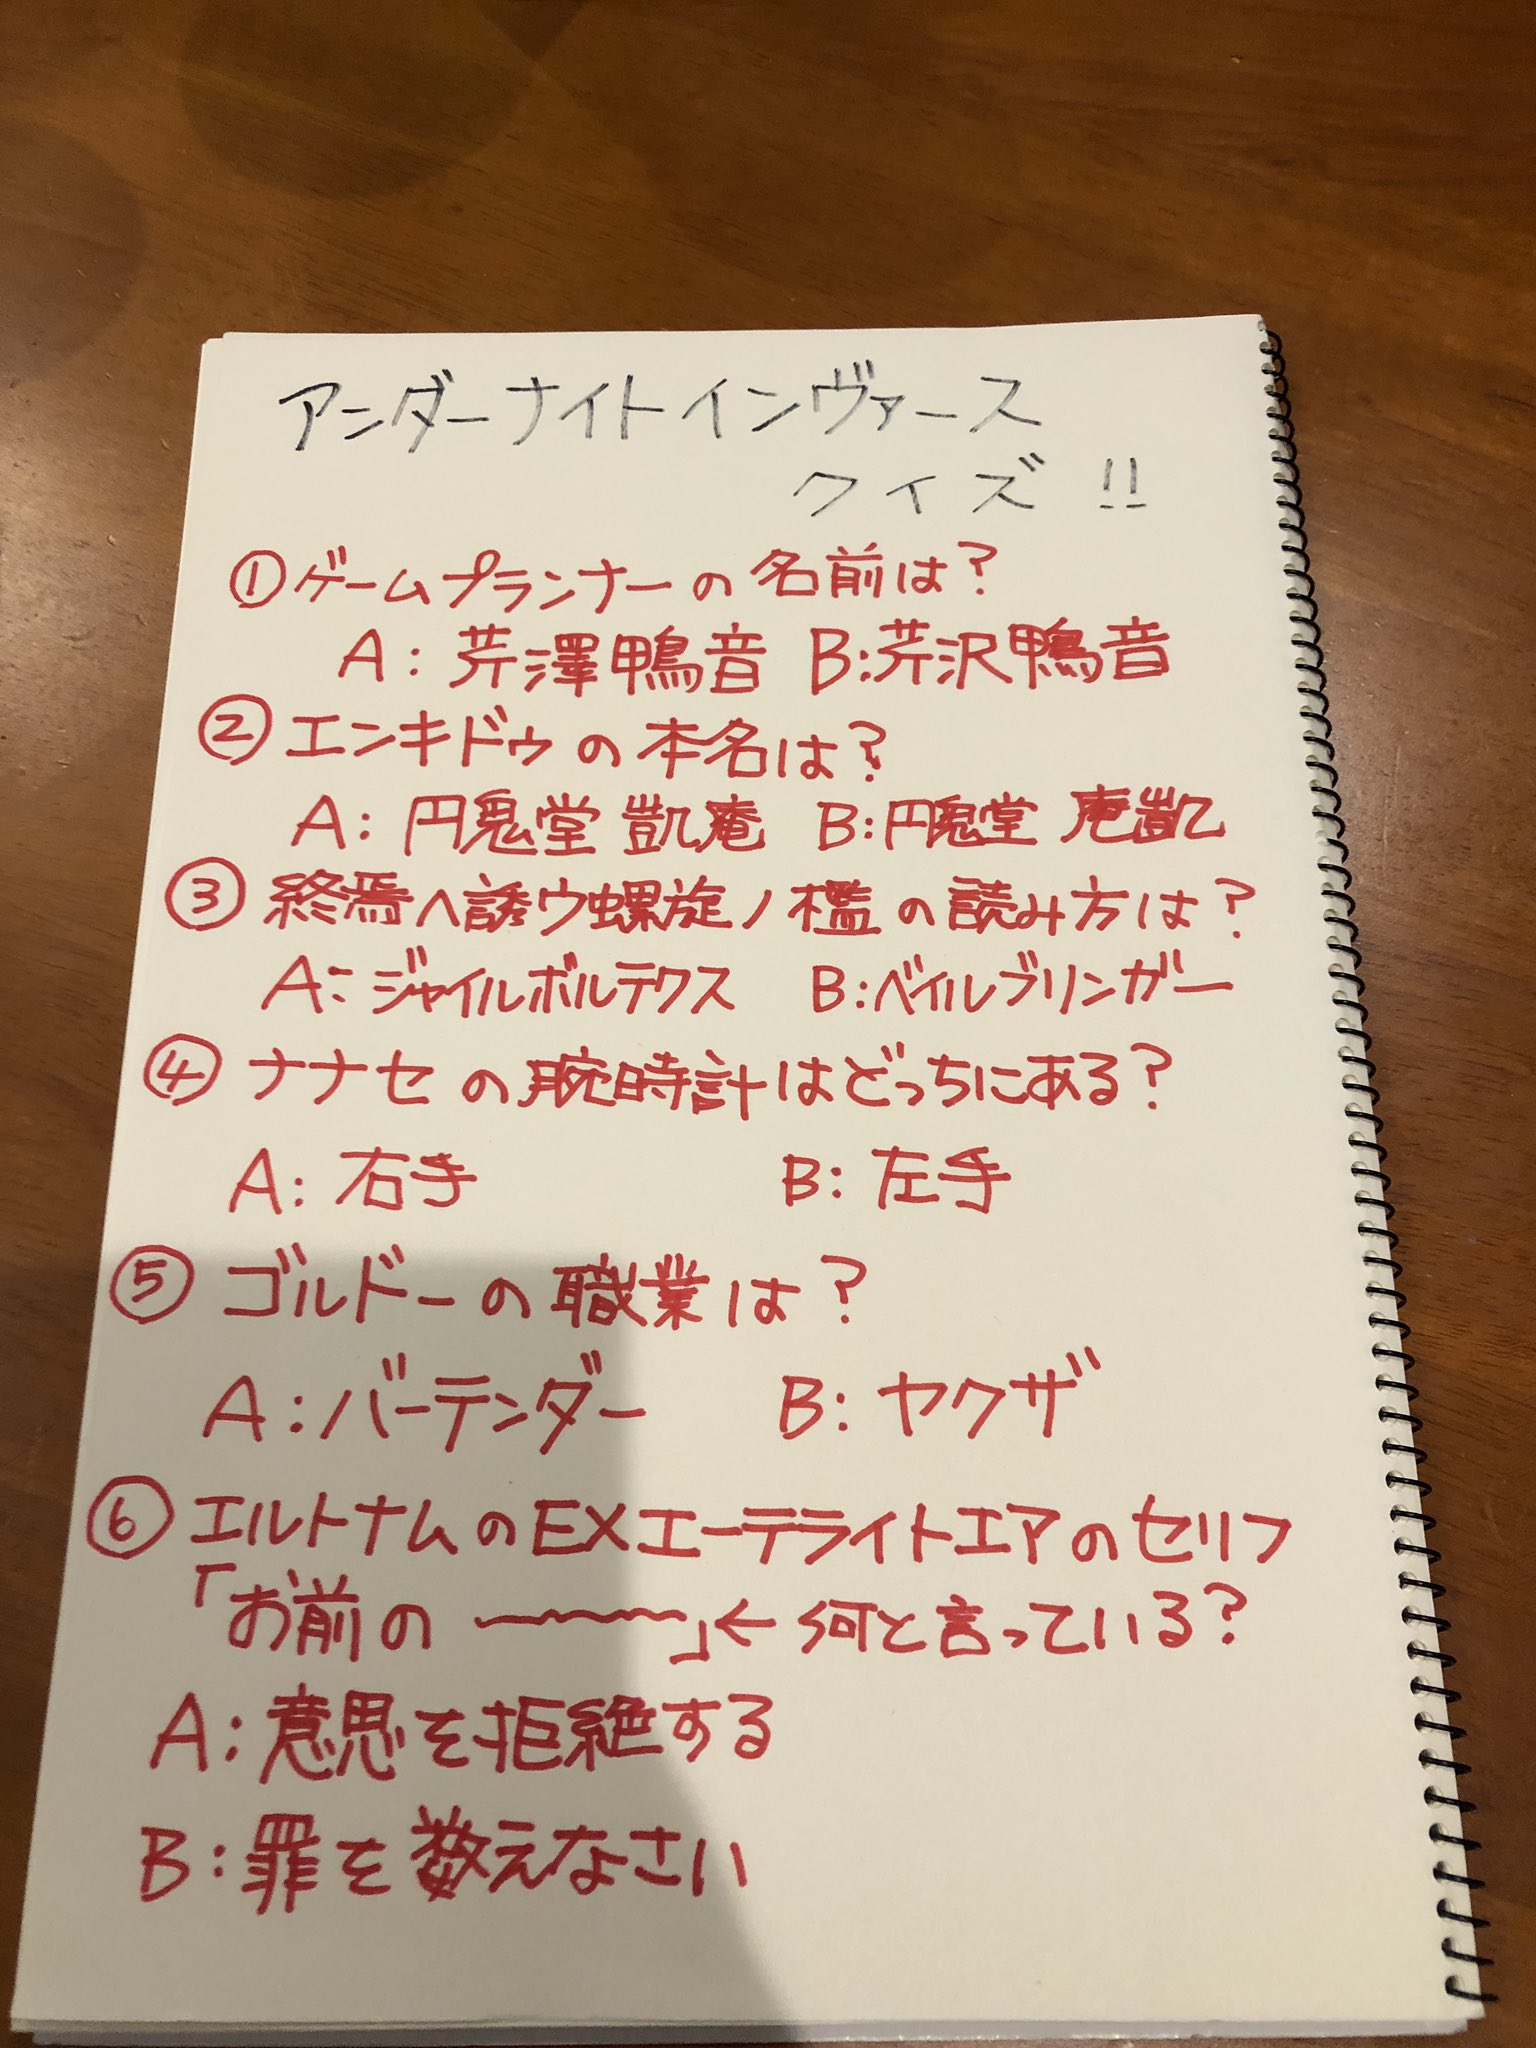 アンダーナイトインヴァース
クイズ!!
①ゲームプランナーの名前は?
A:芹澤鴨音 B:芹沢鴨音
②エンキドゥの本名は?
A:円鬼堂 凱庵 B:円鬼堂 庵凱
③終焉ヘ誘ウ螺旋ノ檻の読み方は?
A:ジャイルボルテクス B:ベイルブリンガー
④ナナセの腕時計はどっちにある?
A:右手 B:左手
⑤ゴルドーの職業は?
A:バーテンダー B:ヤクザ
⑥エルトナムのEXエーテライトエアのセリフ
「お前の 〜〜〜〜」←何と言っている?
A:意思を拒絶する
B:罪を数えなさい